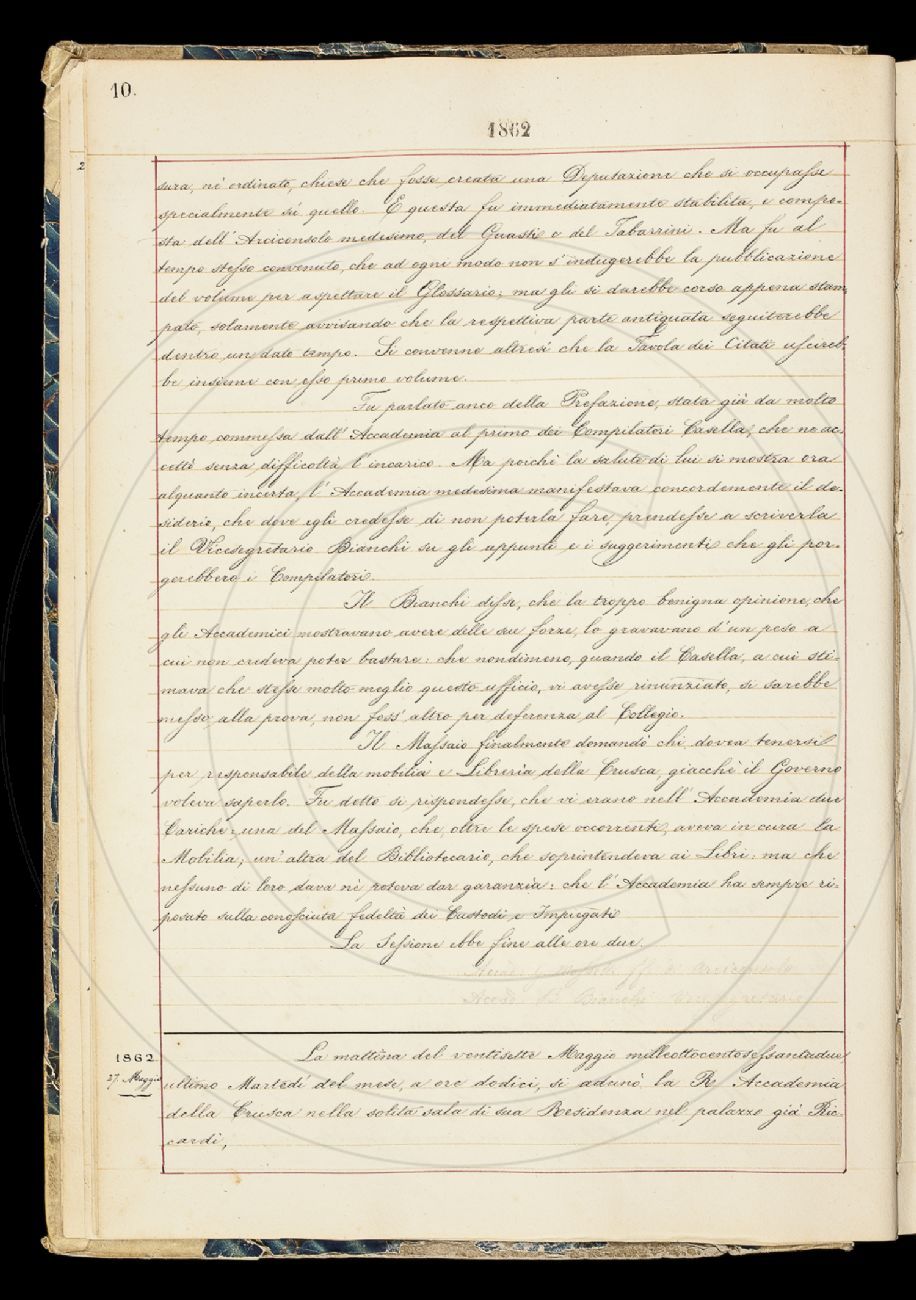 10.
1862
2
sura, nè ordinato, chiese che fosse creata una Deputazione che si occupasse
specialmente di quello. E questa fu immediatamente stabilita, e compo-
sta dell' Arciconsolo medesimo, del Guasti e del Tabarrini. Ma fu al
tempo stesso convenuto, che ad ogni modo non s'indugerebbe la pubblicazione
del volume per aspettare il Glossario; ma gli si darebbe corso appena stam
pato, solamente avvisando che la respettiva parte antiquata seguiterebbe
dentro un dato tempo. Si convenne altresì che la Tavola dei Citati uscireb-
be insieme con esso primo volume.
Fu parlato anco della Prefazione, stata già da molto
tempo commessa dall' Accademia al primo dei Compilatori Casella, che ne ac-
cettò senza difficoltà l'incarico. Ma poichè la salute di lui si mostra ora
alquanto incerta, l' Accademia medesima manifestava concordemente il de-
siderio, che dove egli credesse di non poterla fare, prendesse a scriverla
il Vicesegretario Bianchi su gli appunti e i suggerimenti che gli por-
gerebbero i Compilatori.
Il Bianchi disse, che la troppo benigna opinione, che
gli Accademici mostravano avere delle sue forze, lo gravavano d'un peso a
cui non credeva poter bastare: che nondimeno, quando il Casella, a cui sti-
mava che stesse molto meglio questo ufficio, vi avesse rinunziato, si sarebbe
messo alla prova, non foss' altro per deferenza al Collegio.
Il Massaio finalmente domandò chi dovea tenersi
per responsabile della mobilia e Libreria della Crusca, giacchè il Governo
voleva saperlo. Fu detto si rispondesse, che vi erano nell' Accademia due
Cariche: una del Massaio, che, oltre le spese occorrenti, aveva in cura la
Mobilia; un' altra del Bibliotecario, che soprintendeva ai Libri: ma che
nessuno di loro dava nè poteva dar garanzia: che l' Accademia ha sempre ri-
posato sulla conosciuta fedeltà dei Custodi e Impiegati
La Sessione ebbe fine alle ore due.
Arciconsolo
Bianchi Vicesegretario
1862
27. Maggio
La mattina del ventisette Maggio milleottocentosessantadue
ultimo Martedì del mese, a ore dodici, si adunò la R. Accademia
della Crusca nella solita sala di sua Residenza nel palazzo già Ric-
cardi,